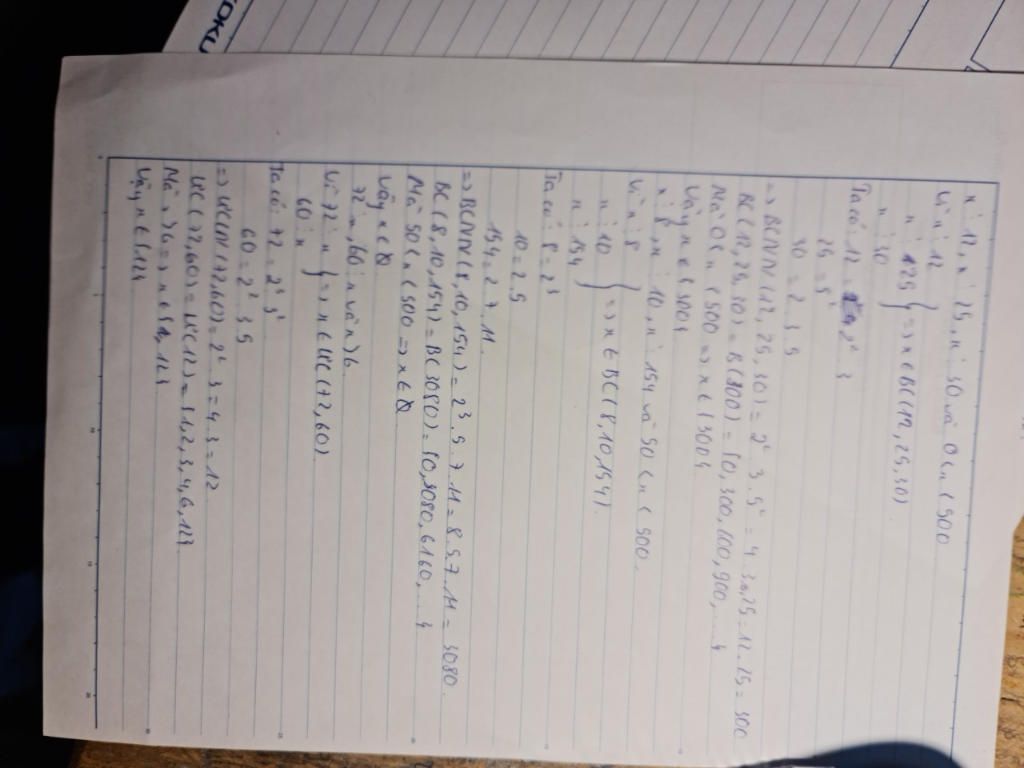 TOKU
x ⋮ 12, x ⋮ 25, x ⋮ 30 và 0 < x < 500
Vì x ⋮ 12
x ⋮ 125 } => x ∈ BC(12, 25, 30)
x ⋮ 30
Ta có: 12 = 2² . 3
25 = 5²
30 = 2 . 3 . 5
=> BCNN(12, 25, 30) = 2² . 3 . 5² = 4 . 3 . 25 = 12 . 25 = 300
BC(12, 25, 30) = B(300) = {0, 300, 600, 900, ...}
Mà 0 < x < 500 => x ∈ {300}
Vậy x ∈ {300}
x ⋮ 8, x ⋮ 10, x ⋮ 154 và 50 < x < 500.
Vì x ⋮ 8
x ⋮ 10 } => x ∈ BC(8, 10, 154).
x ⋮ 154
Ta có: 8 = 2³
10 = 2 . 5
154 = 2 . 7 . 11.
=> BCNN(8, 10, 154) = 2³ . 5 . 7 . 11 = 8 . 5 . 7 . 11 = 3080.
BC(8, 10, 154) = B(3080) = {0, 3080, 6160, ...}
Mà 50 < x < 500 => x ∈ ∅
Vậy x ∈ ∅
72 ⋮ x, 60 ⋮ x và x > 6.
Vì 72 ⋮ x } => x ∈ ƯC(72, 60)
60 ⋮ x
Ta có: 72 = 2³ . 3²
60 = 2² . 3 . 5
=> ƯCLN(72, 60) = 2² . 3 = 4 . 3 = 12.
ƯC(72, 60) = Ư(12) = {1, 2, 3, 4, 6, 12}
Mà x > 6 => x ∈ {12}
Vậy x ∈ {12}